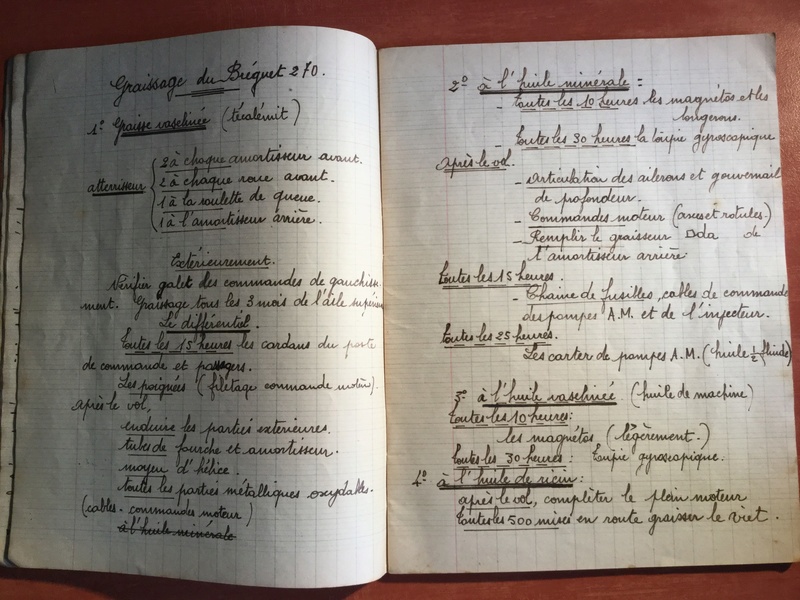 Graissage du Bréguet 270.
1° Graisse vaselinée (técalémit)
atterrisseur
2 à chaque amortisseur avant.
2 à chaque roue avant.
1 à la roulette de queue.
1 à l'amortisseur arrière.
Extérieurement.
Vérifier galet des commandes de gauchisse-
ment. Graissage tous les 3 mois de l'aile supérieure
Le différentiel.
Toutes les 15 heures les cardans du poste
de commande et passagers.
Les poignées (filetage commande moteur).
Après le vol,
enduire les parties exterieures.
tubes de fourche et amortisseur.
moyeu d'hélice.
toutes les parties métalliques oxydables.
(cables. commandes moteur)
à l'huile minérale
2° à l'huile minérale =
- Toutes les 10 heures les magnétos et les
longerons.
- Toutes les 30 heures la toupie gyroscopique
Après le vol.
- Articulation des ailerons et gouvernail
de profondeur.
- Commandes moteur (axes et rotules.)
- Remplir le graisseur de
l'amortisseur arrière.
Toutes les 15 heures.
- Chaine de fusilles, cables de commande
des pompes A.M. et de l'injecteur.
Toutes les 25 heures.
Les carter de pompes A.M. (huile ½ fluide)
3° à l'huile vaselinée (huile de machine)
Toutes les 10 heures:
les magnétos (légèrement.)
Toutes les 30 heures: Toupie gyroscopique.
4° à l'huile de ricin:
après le vol, complèter le plein moteur
Toutes les 500 mises en route graisser le viet.